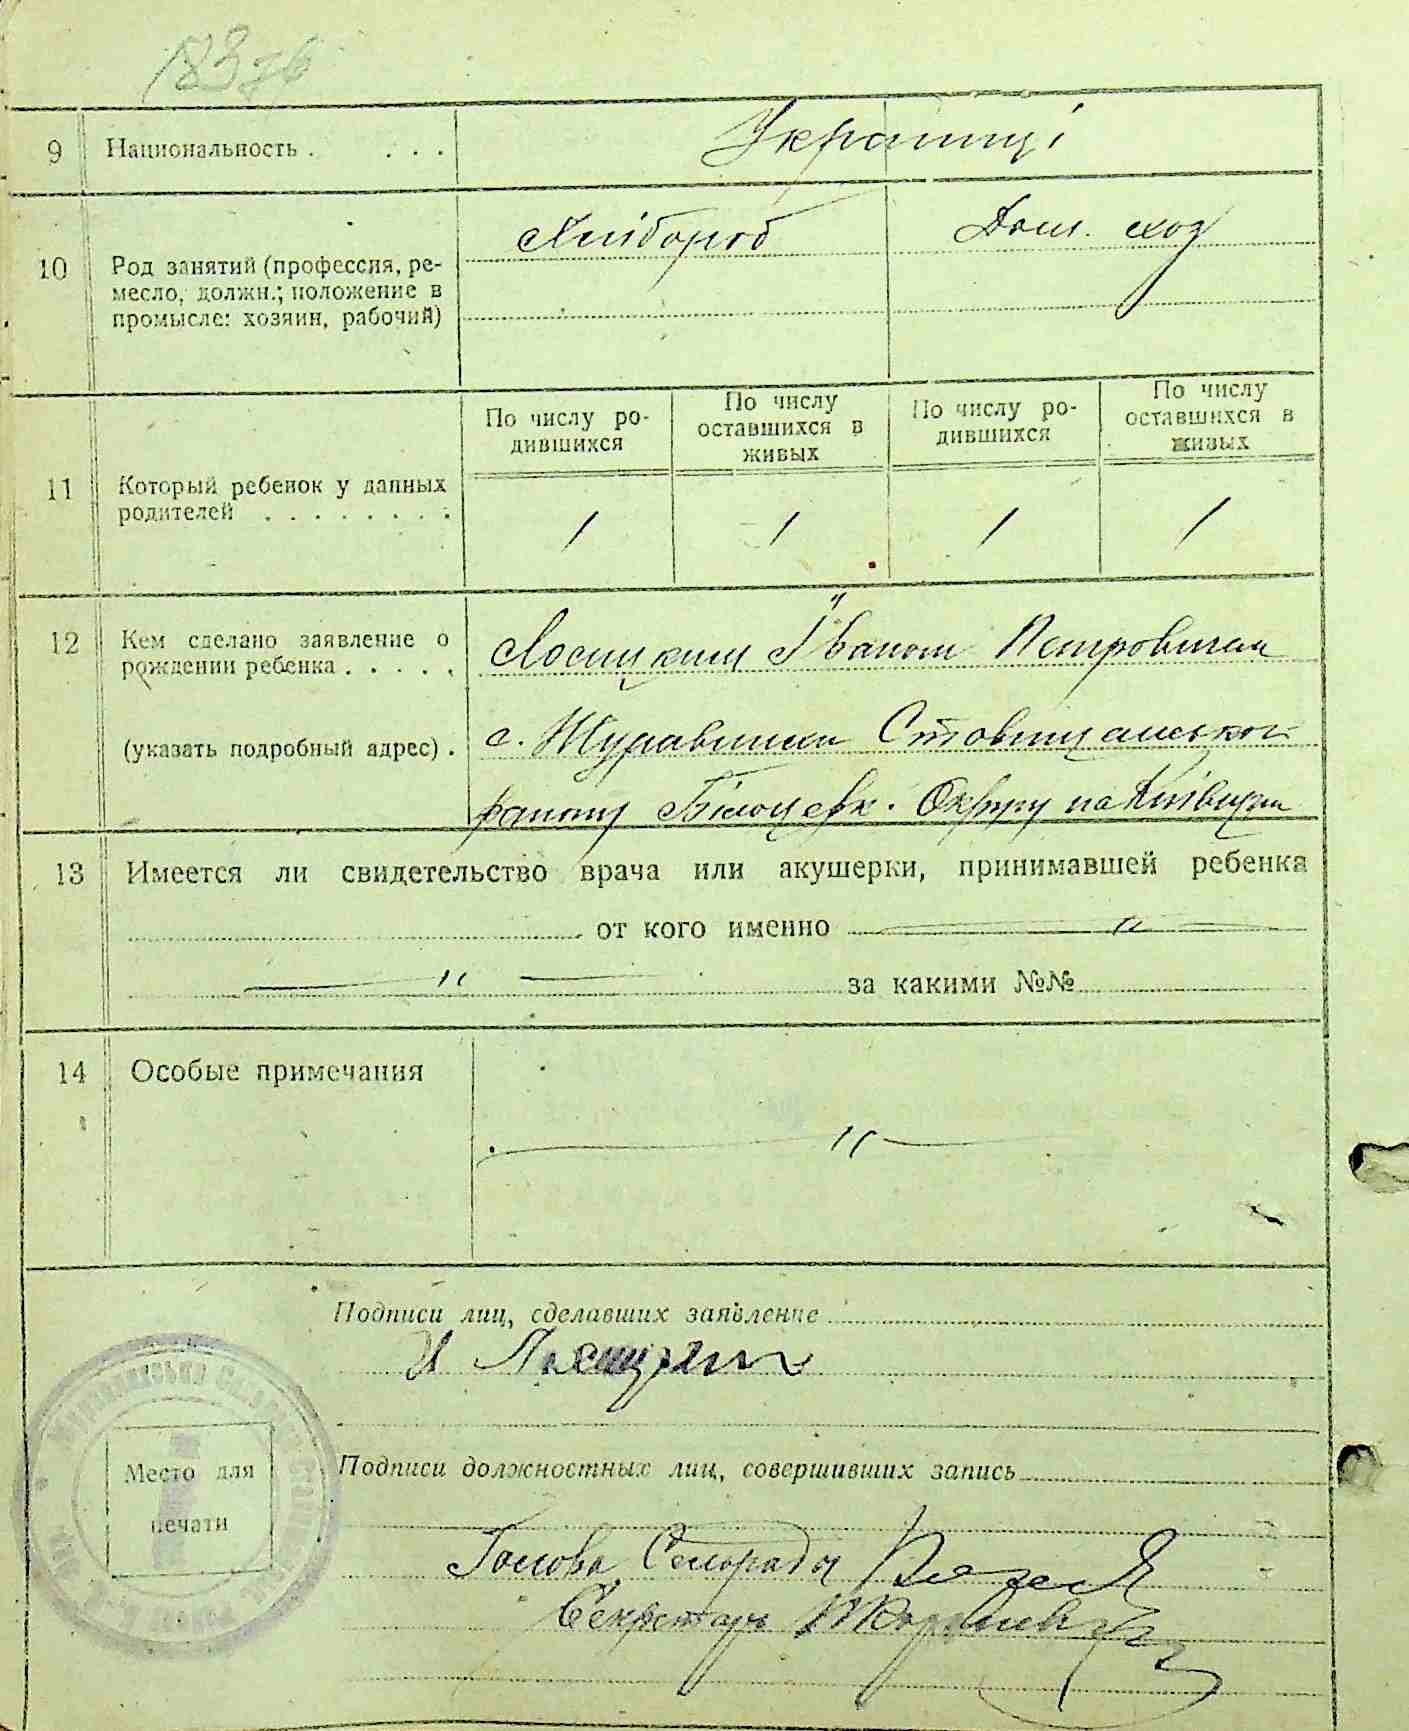 9 Национальность . . . . Українці
10 Род занятий (профессия, ре-
месло, должн.; положение в
промысле: хозяин, рабочий)
Хлібороб Дом. хоз
11 Который ребенок у данных
родителей . . . . . . . .
По числу ро-
дившихся
По числу
оставшихся в
живых
По числу ро-
дившихся
По числу
оставшихся в
живых
1 1 1 1
12 Кем сделано заявление о
рождении ребенка . . . . .
(указать подробный адрес) .
Лосицким Іваном Петровичем
с. Журавлиха Ставищанського
району Білоцерк. Округу на Київщині
13 Имеется ли свидетельство врача или акушерки, принимавшей ребенка
от кого именно — " —
— " — за какими №№
14 Особые примечания
— " —
Подписи лиц, сделавших заявление
И Лосицкий
Место для
печати
Подписи должностных лиц, совершивших запись
Голова Сельради
Секретарь